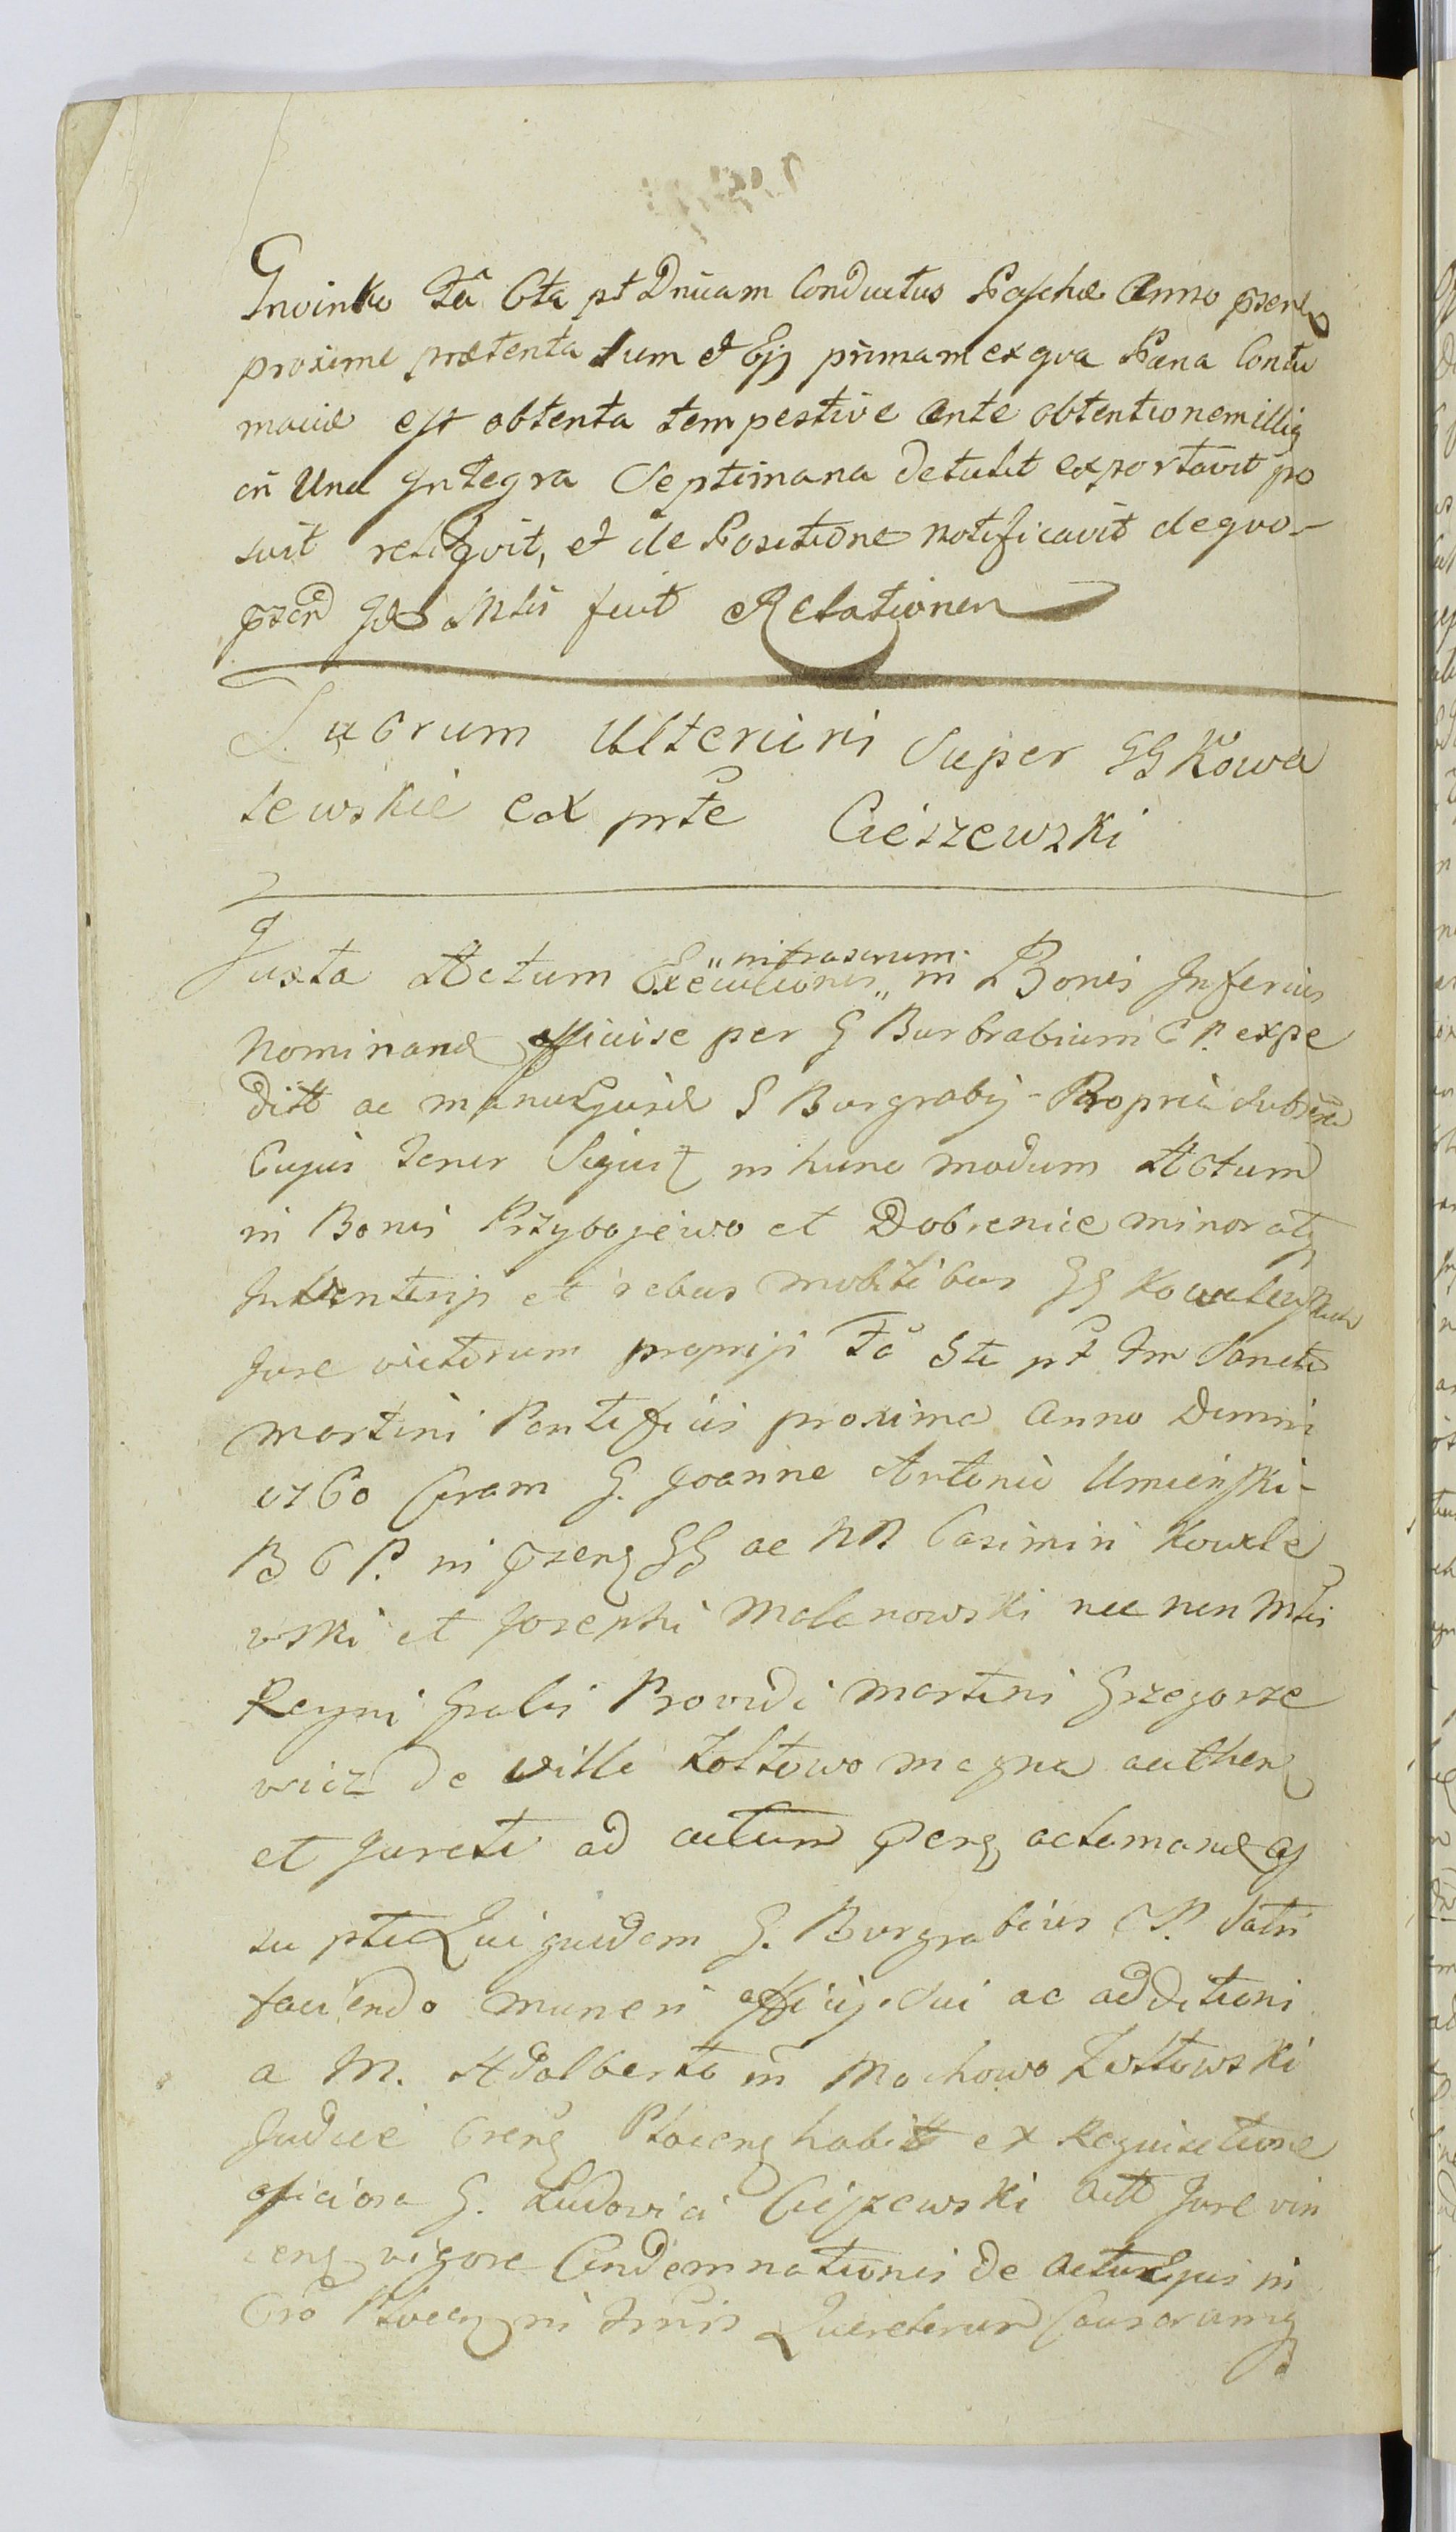 Gnoinko Fa 6ta pt Dnicam Conductus Paschae Anno psenti
proxime praetenta Sum et Ejg primam ex qva Paena Contu
maciae est obtenta tempestive Ante obtentionem illig
in Una Integra Septimana detulit exportavit po
suit reliqvit, et de Positione notificavit de qvo-
psens Idem Mlis fecit Relationem
Lucrum Ulterioris Super GG Kowa
lewskie ex prte Cieszewski
Juxta Actum Executionis "infrascrum" in Bonis Inferius
Nominand officiose per G Burgrabium C P. expe
ditt ac manu Ejusd G Burgrabij Propria Subscr
Cujus Tenor Seqvit in hunc modum Actum
in Bonis Przybojewo et Dobrenice minor atq
Inventarijs et rebus mobilibus GG Kowalewskich
Jure victorum proprijs Fa 5ta pt Fm Sancti
Martini Pontificis proxima Anno Domini
1760 Coram G. Joanne Antonio Umieński-
B C P. in psenq GG ac NN Casimiri Kowale
wski et Josephi Malanowski nec non Mlis
Regni Gralis Providi Martini Grzegorze
wicz de Villa Zołtowo magna authen
et Jurati ad actum psenq aclamand
su pti Qui quidem G. Burgrabius C P. Satis
faciendo muneri officij Sui ac additioni
a M. Adalberto in Mochowo Zołtowski
Judice Crens Plocens habitt ex Reqvisitione
officiosa G. Ludovici Cieszewski Actt Jure vin
cens vigore Condemnationis de Actu Ejus in
Cro Plocen in Tmis Qverelarum Causarumq